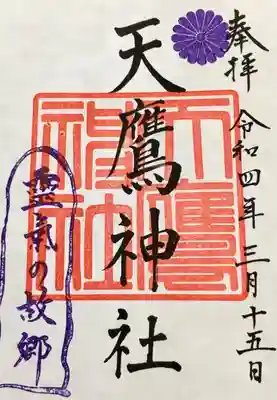 奉拝
令和四年三月十五日
天鷹神社
天鷹神社
霊氣の故郷